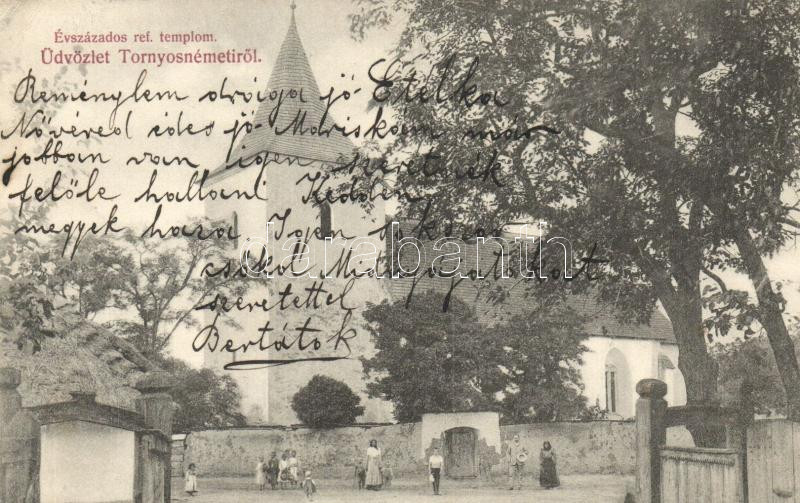 Évszázados ref. templom.
Üdvözlet Tornyosnémetiről.
Reménylem drága jó Etelka
Nővéred édes jó Mariskám már
jobban van igen szeretnék
felőle hallani Kedden
megyek haza Igen sokszor
csókol Mindnyájatokat
szeretettel
Bertátok
darabanth